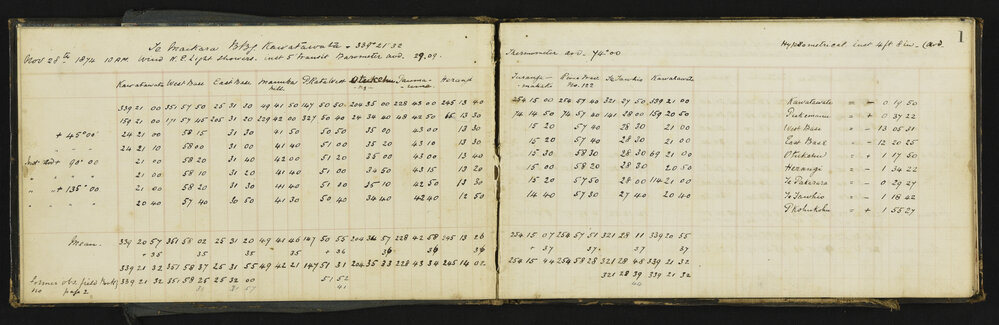 Te Maikara BBy. Kawatawata 339° 21 32
Nov 28th 1874 10 AM Wind N.E Light Showers. Inst 5 Transit Barometer and. 29.09.
Kawatawata West Base East Base Manuka Hill Otukehu Hereund
339 21 00 351 57 50 25 31 30 49 41 50 147 50 50 204 35 00 228 43 00 245 13 40
159 21 00 171 57 45 205 31 20 229 42 00 327 50 40 24 34 40 48 42 50 65 13 30
+ 45° 00' 24 21 00 58 15 31 30 41 50 50 50 35 00 43 00 13 30
24 21 10 58 00 31 00 41 40 51 00 35 20 43 10 13 30
+ 90° 00 21 00 58 20 31 40 42 00 51 20 35 00 43 00 13 40
" " " 21 00 58 10 31 20 41 40 51 00 34 50 43 15 13 20
" " + 135° 00 21 00 58 20 31 30 41 40 51 10 35 10 42 50 13 30
" " 20 40 57 40 30 50 41 30 50 40 34 40 42 40 12 50
Mean. 339 20 57 351 58 02 25 31 20 49 41 46 147 50 55 204 34 57 228 42 58 245 13 26
+ 35 35 35 35 + 36 36 36 36
339 21 32 351 58 37 25 31 55 49 42 21 147 51 31 204 35 33 228 43 34 245 14 02
Former obs. field Book 339 21 32 351 58 25 25 32 00 51 52
no page 2 31 57 41
1
Thermometer and. 74°.00 Hypsometrical inst 4 ft 8 in. (and
Te Tawhio Kawatawata
No. 122
254 15 00 254 57 40 321 27 50 339 21 00
74 14 50 74 57 40 141 28 00 159 20 50
15 20 57 40 28 30 21 00
15 20 57 40 28 30 21 00
15 30 58 30 28 30 69 21 00
15 00 58 20 28 30 20 50
15 20 57 50 28 00 114 21 00
14 40 57 30 27 40 20 40
254 15 07 254 57 51 321 28 11 339 20 55
+ 37 37+ 37 37
254 15 44 254 58 28 321 28 48 339 21 32
321 28 39 339 21 32
40
Kawatawata = - 0 19 50
Pukemanu = + 0 37 22
West Base = - 13 05 31
East Base = - 12 20 25
Otukehu = + 1 17 50
Herangi = + 1 34 22
Te Pakaraka = - 0 29 27
Te Tawhio = - 1 18 42
Pkohukohu = + 1 55 27